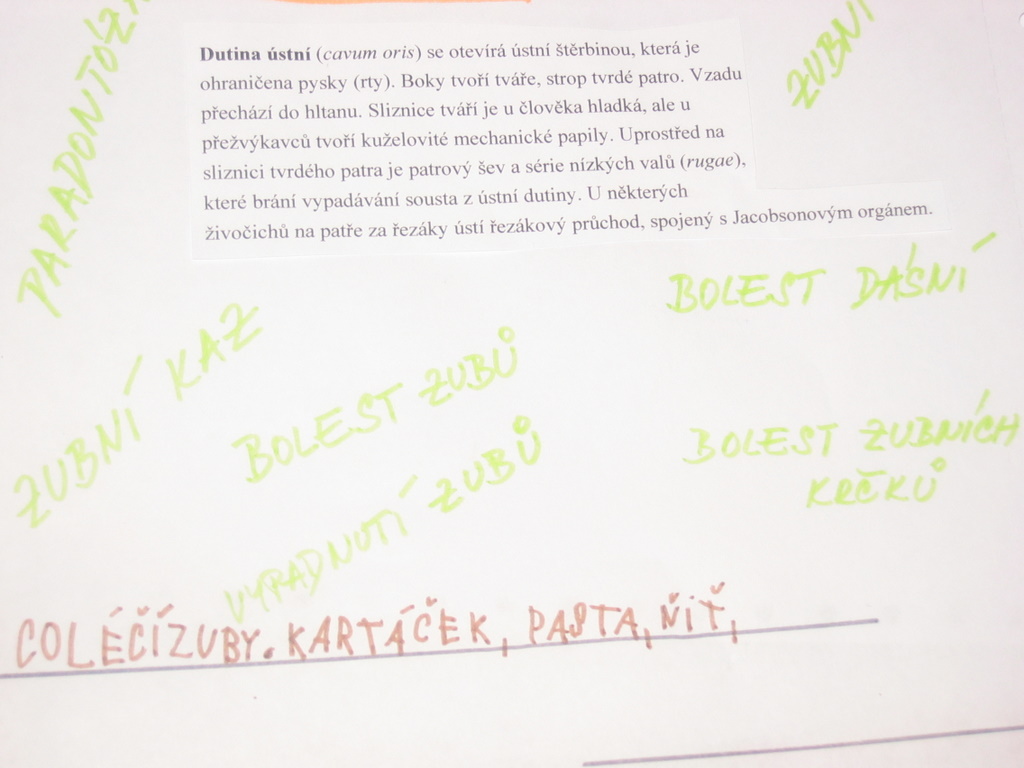 PARADONTÓZ
ZUBNÍ
Dutina ústní (cavum oris) se otevírá ústní štěrbinou, která je
ohraničena pysky (rty). Boky tvoří tváře, strop tvrdé patro. Vzadu
přechází do hltanu. Sliznice tváří je u člověka hladká, ale u
přežvýkavců tvoří kuželovité mechanické papily. Uprostřed na
sliznici tvrdého patra je patrový šev a série nízkých valů (rugae),
které brání vypadávání sousta z ústní dutiny. U některých
živočichů na patře za řezáky ústí řezákový průchod, spojený s Jacobsonovým orgánem.
BOLEST DÁSNÍ
ZUBNÍ KAZ
BOLEST ZUBŮ
BOLEST ZUBNÍCH
KRČKŮ
VYPADNUTÍ ZUBŮ
COLÉČÍZUBY. KARTÁČEK, PASTA, ŇIŤ,